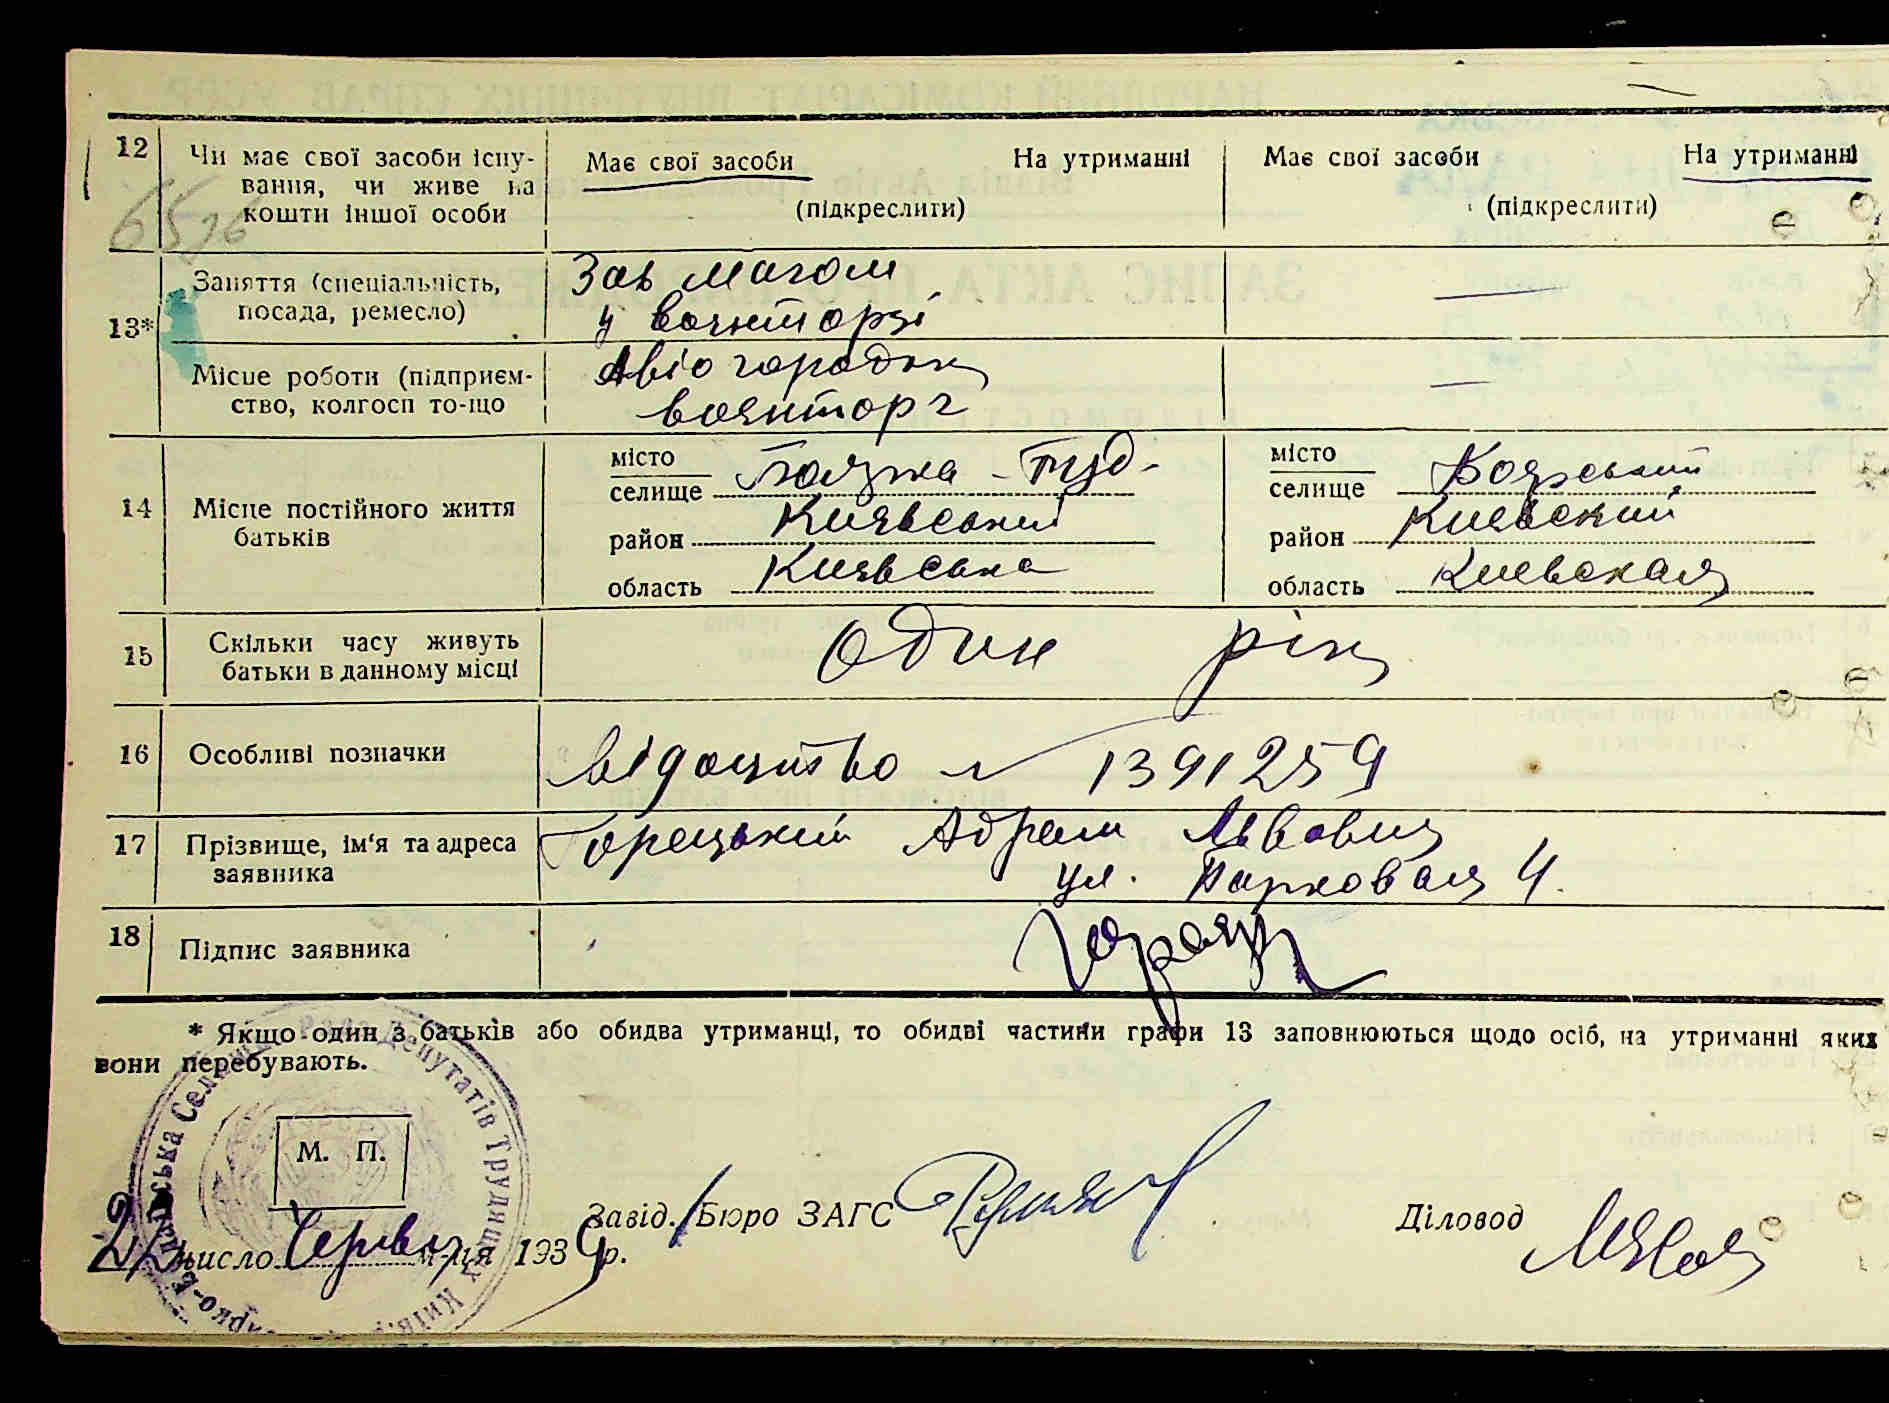 12
Чи має свої засоби існу-
вання, чи живе на
кошти іншої особи
Має свої засоби
На утриманні
(підкреслити)
Має свої засоби
На утриманні
(підкреслити)
13*
Заняття (спеціальність,
посада, ремесло)
Зав магом
у воєнторзі
Місце роботи (підприєм-
ство, колгосп то-що
Авіо городок
воєнторг
14
Місце постійного життя
батьків
місто
селище
район Киевський
область Киевська
місто
селище Боярський
район Киевский
область Киевская
15
Скільки часу живуть
батьки в данному місці
Один рік
16
Особливі позначки
свідоцтво № 1391259
17
Прізвище, ім'я та адреса
заявника
Горецький Абрам Львович
ул. Парковая 4.
18
Підпис заявника
* Якщо один з батьків або обидва утриманці, то обидві частини графи 13 заповнюються щодо осіб, на утриманні яких
вони перебувають.
Рада Депутатів Трудящих
М. П.
Завід. Бюро ЗАГС
Діловод
число Червня м-ця 1939 р.